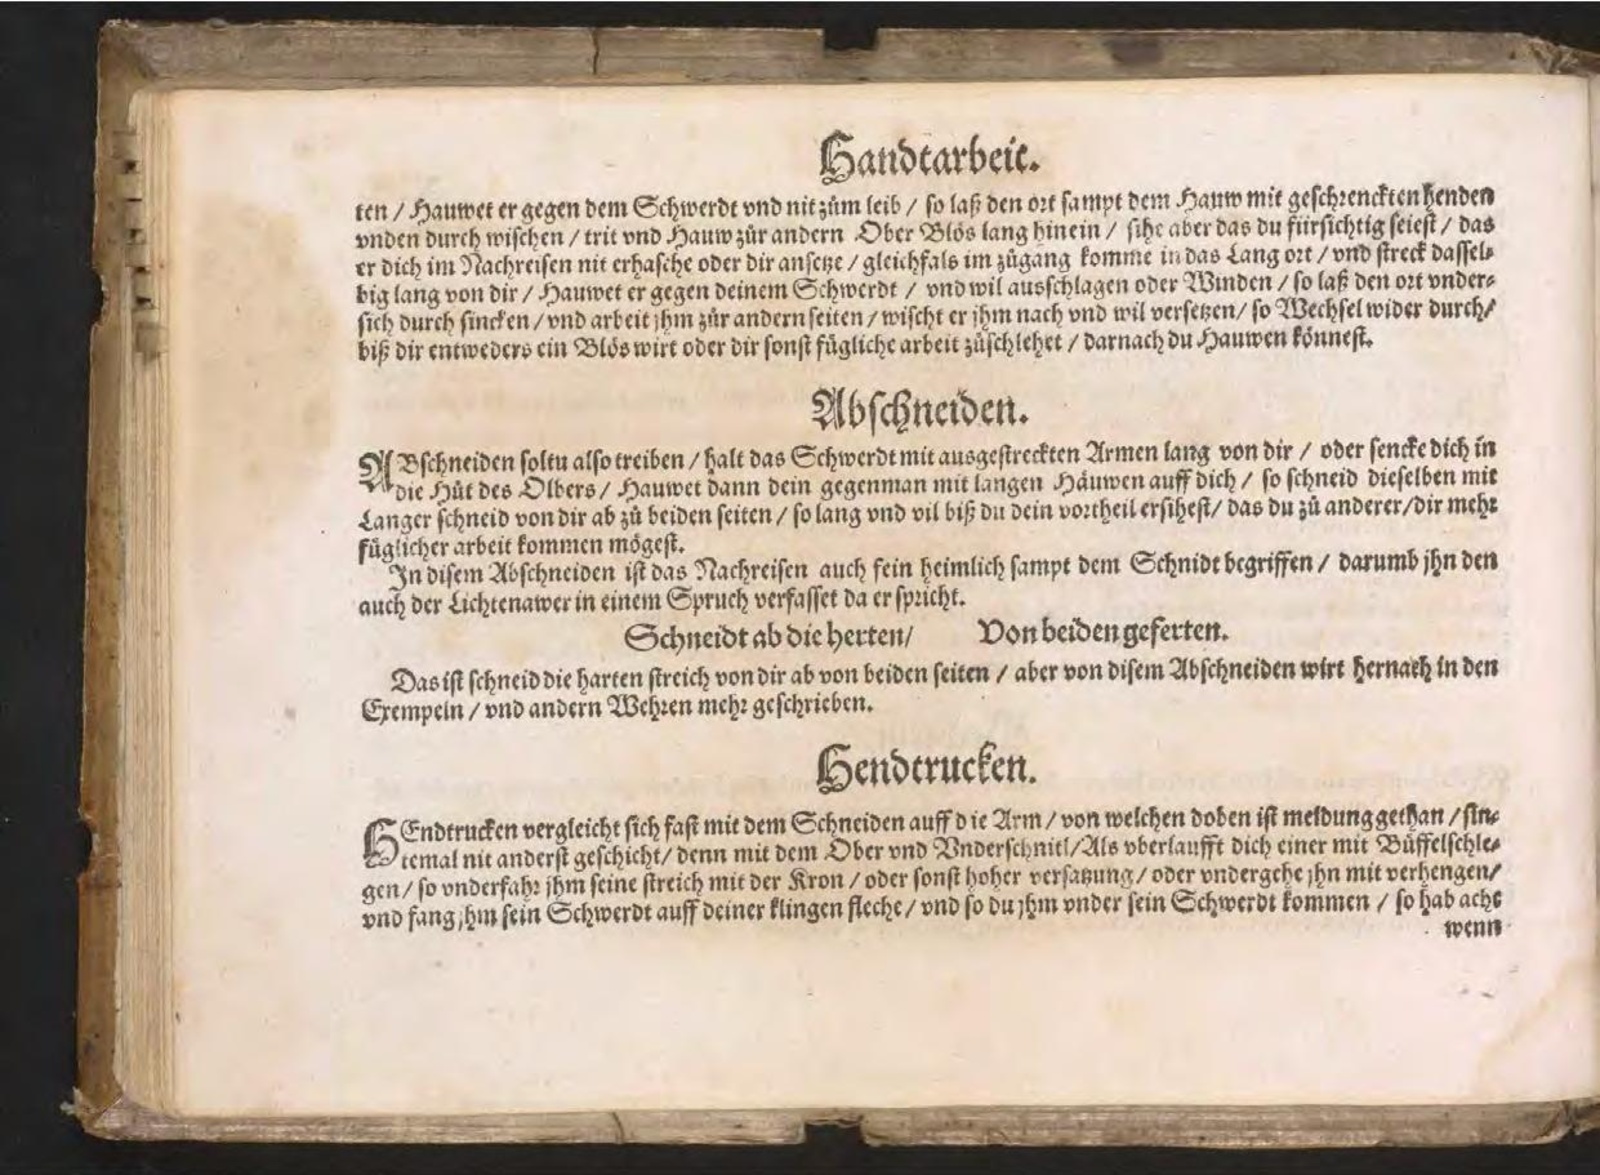 Handtarbeit.
ten / Hauwet er gegen dem Schwerdt vnd nit zům leib / so laß den ort sampt dem Hauw mit geschrenckten henden
vnden durch wischen / trit vnd Hauw zůr andern Ober Blös lang hinein / sihe aber das du fürsichtig seiest / das
er dich im Nachreisen nit erhasche oder dir ansetze / gleichfals im zůgang komme in das Lang ort / vnd streck dassel-
big lang von dir / Hauwet er gegen deinem Schwerdt / vnd wil ausschlagen oder Winden / so laß den ort vnder-
sich durch sincken / vnd arbeit jhm zůr andern seiten / wischt er jhm nach vnd wil versetzen / so Wechsel wider durch /
biß dir entweders ein Blös wirt oder dir sonst fügliche arbeit zůschlehet / darnach du Hauwen könnest.
Abschneiden.
ABschneiden soltu also treiben / halt das Schwerdt mit ausgestreckten Armen lang von dir / oder sencke dich in
die Hůt des Olbers / Hauwet dann dein gegenman mit langen Häuwen auff dich / so schneid dieselben mit
Langer schneid von dir ab zů beiden seiten / so lang vnd vil biß du dein vortheil ersihest / das du zů anderer / dir mehr
füglicher arbeit kommen mögest.
In disem Abschneiden ist das Nachreisen auch fein heimlich sampt dem Schnidt begriffen / darumb jhn den
auch der Lichtenawer in einem Spruch verfasset da er spricht.
Schneidt ab die herten / Von beiden geferten.
Das ist schneid die harten streich von dir ab von beiden seiten / aber von disem Abschneiden wirt hernach in den
Exempeln / vnd andern Wehren mehr geschrieben.
Hendtrucken.
HEndtrucken vergleicht sich fast mit dem Schneiden auff die Arm / von welchen doben ist meldung gethan / sin-
temal nit anderst geschicht / denn mit dem Ober vnd Vnderschnitl / Als vberlaufft dich einer mit Büffelschle-
gen / so vnderfahr jhm seine streich mit der Kron / oder sonst hoher versatzung / oder vndergehe jhn mit verhengen /
vnd fang jhm sein Schwerdt auff deiner klingen fleche / vnd so du jhm vnder sein Schwerdt kommen / so hab acht
wenn